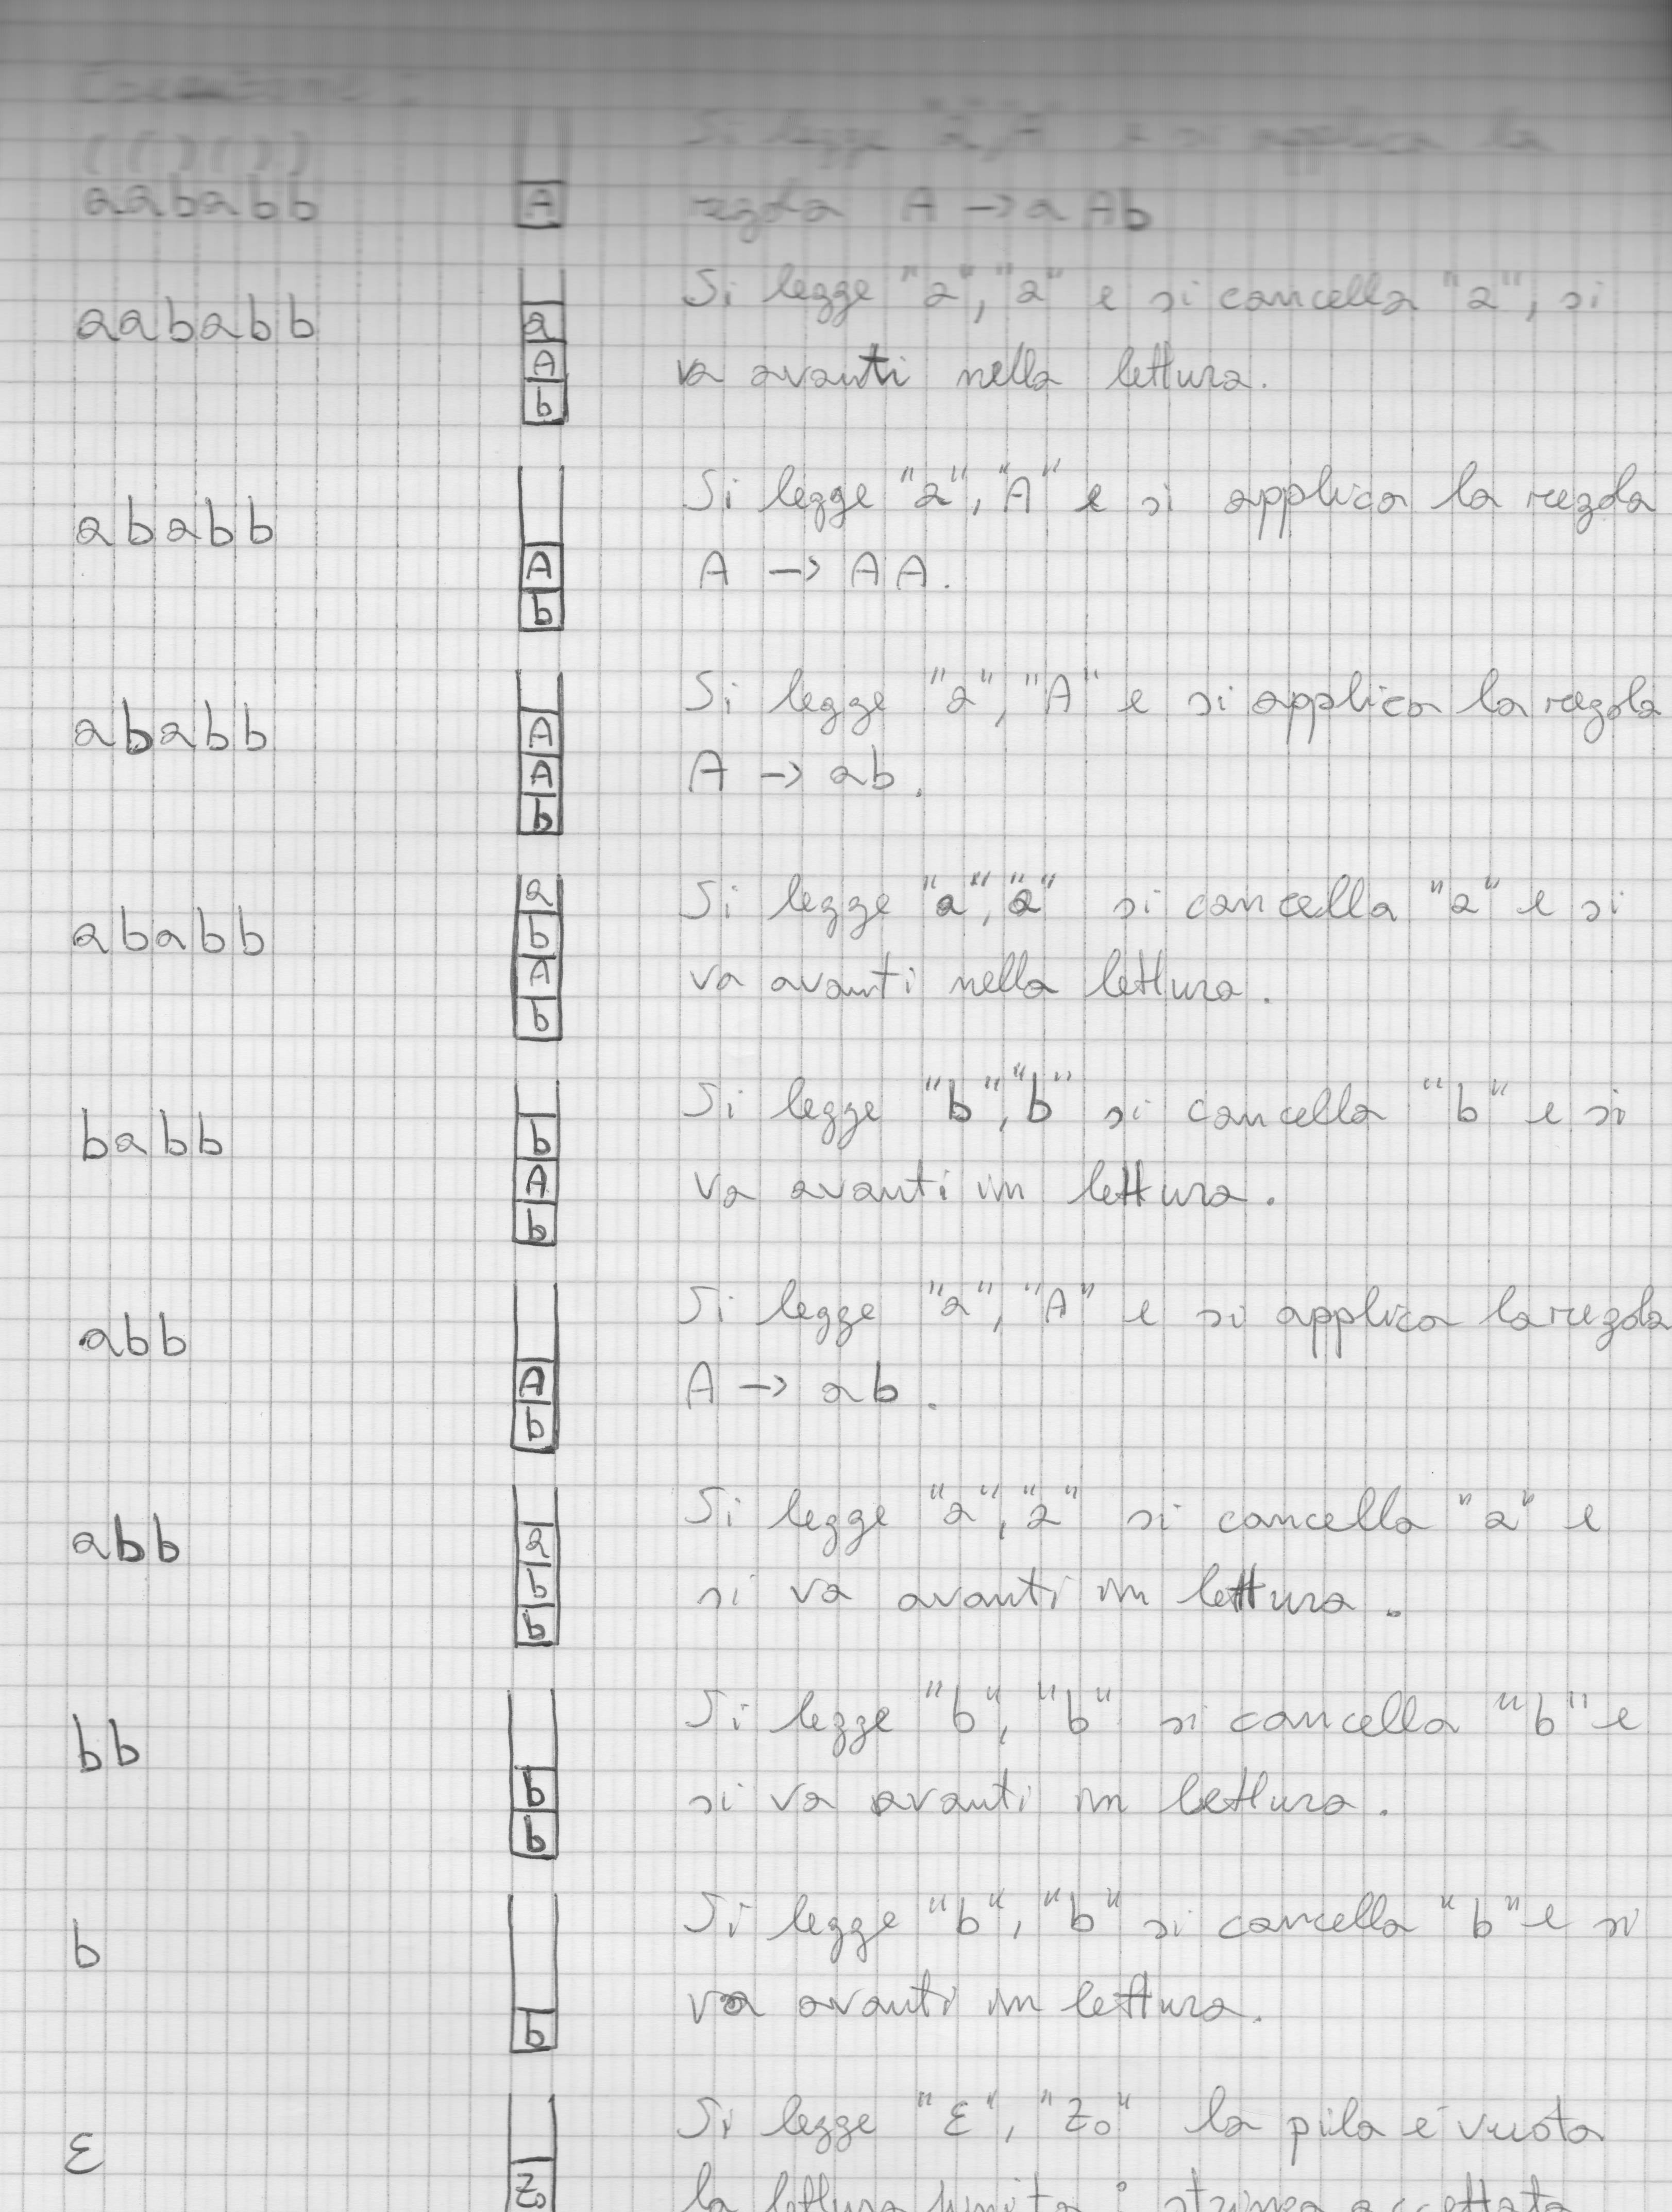 Esecuzione:
(()())
aababb
A
Si legge "a", "A" e si applica la
regola A → aAb
aababb
a
A
b
Si legge "a", "a" e si cancella "a", si
va avanti nella lettura.
ababb
A
b
Si legge "a", "A" e si applica la regola
A → AA.
ababb
A
A
b
Si legge "a", "A" e si applica la regola
A → ab.
ababb
a
b
A
b
Si legge "a", "a" si cancella "a" e si
va avanti nella lettura.
babb
b
A
b
Si legge "b", "b" si cancella "b" e si
va avanti in lettura.
abb
A
b
Si legge "a", "A" e si applica la regola
A → ab.
abb
a
b
b
Si legge "a", "a" si cancella "a" e
si va avanti in lettura.
bb
b
b
Si legge "b", "b" si cancella "b" e
si va avanti in lettura.
b
b
Si legge "b", "b" si cancella "b" e si
va avanti in lettura.
ε
Z₀
Si legge "ε", "Z₀" la pila è vuota
la lettura finita: stringa accettata